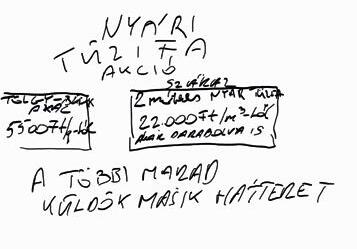 NYÁRI
TŰZIFA
AKCIÓ
TÖLGY-BÜKK
AKÁC
5500Ft/q-tól
SZÁRAZ
2 méteres NYÁR
22.000Ft/m³-től
AKÁR DARABOLVA IS
A TÖBBI MARAD
KÜLDÖK MÁSIK HÁTTERET